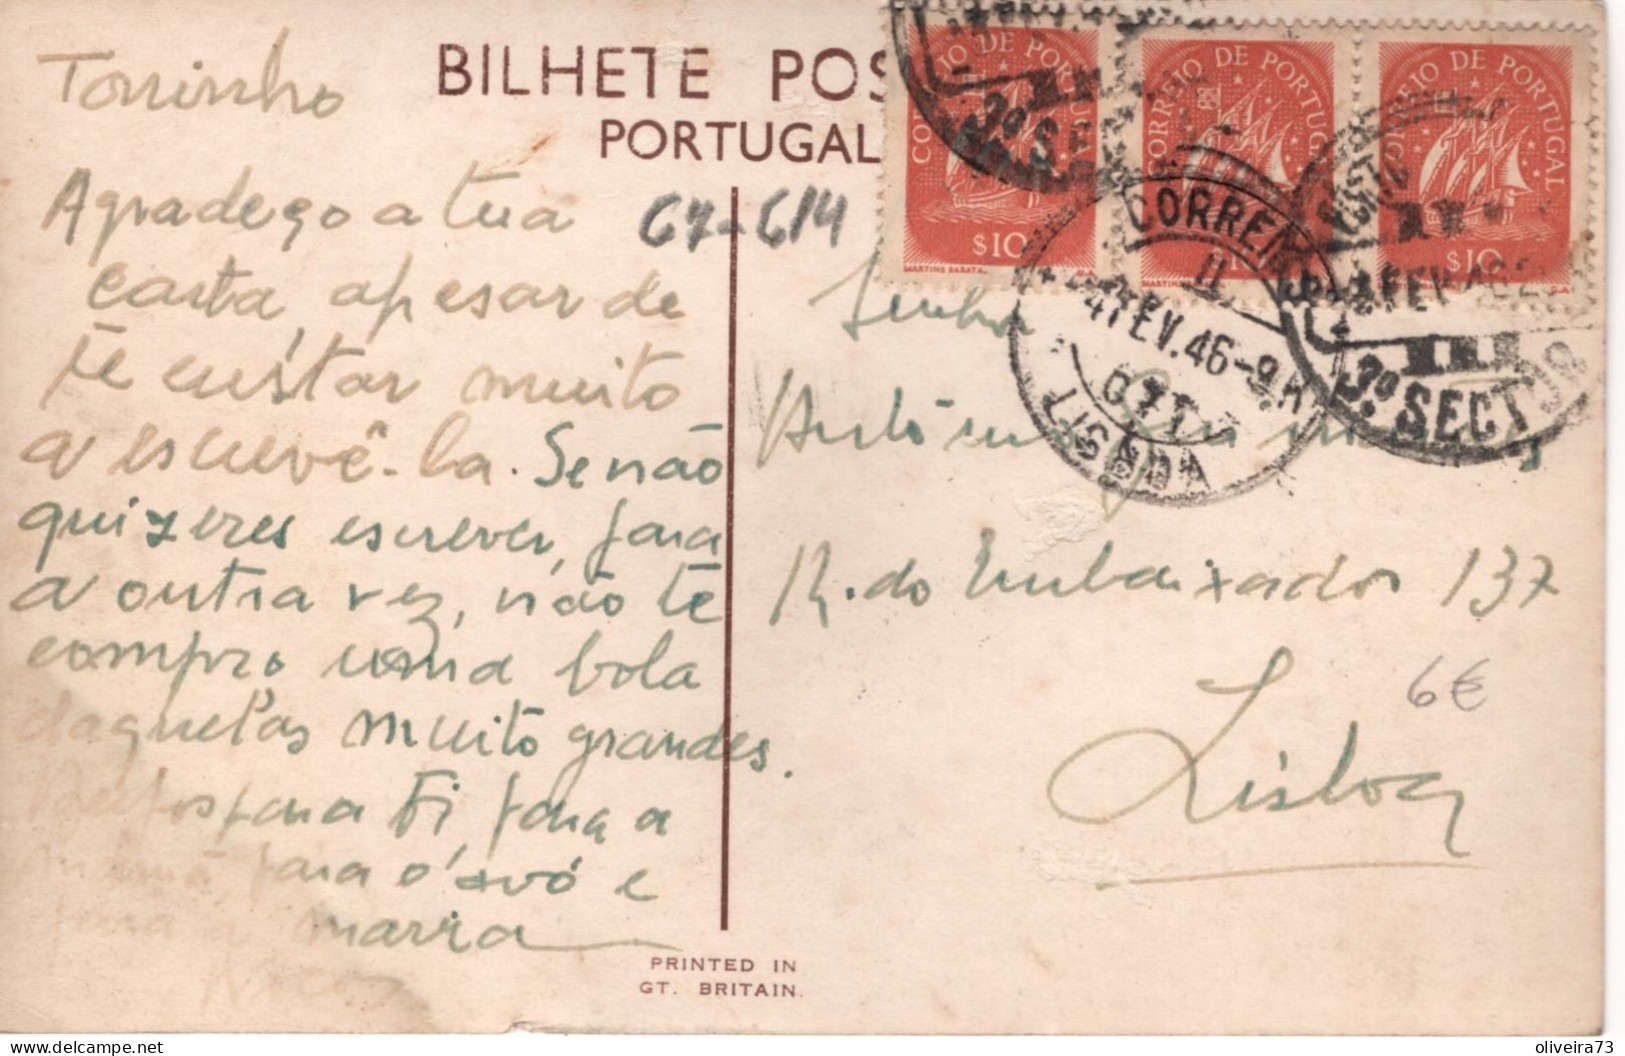 BILHETE POS
PORTUGAL
Toninho
Agradeço a tua
carta, apesar de
te custar muito
a escrevê-la. Se não
quizeres escrever, para
a outra vez, não te
compro uma bola
daquelas muito grandes.
para ti, para a
mamã, para o avó e
para a
67-614
Senhor
António
R. do Embaixador 137
Lisboa
6€
CORREIO DE PORTUGAL
$10
MARTINS BARATA.
CORREIO DE PORTUGAL
MARTINS
CORREIO DE PORTUGAL
$10
3º SECT
CORREIO
4 FEV. 46-9H
LISBOA
3º SECT
PRINTED IN
GT. BRITAIN.
oliveira73